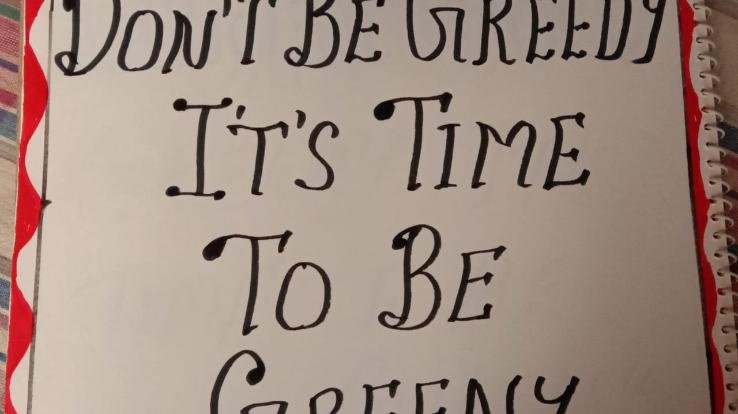 DON'T BE GREEDY
IT'S TIME
TO BE
GREENY